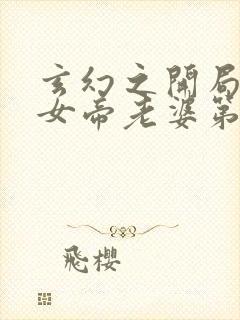 玄幻之開局
女帝老婆第
飛櫻